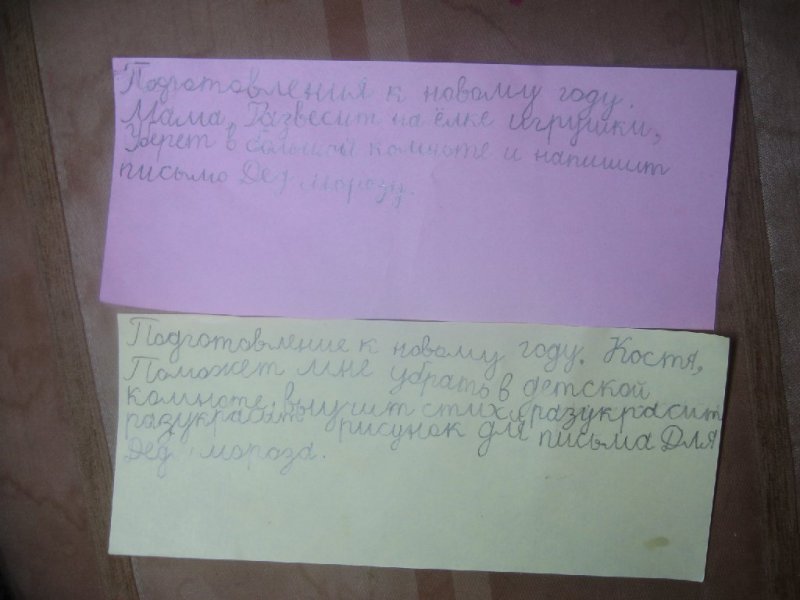 Подготовления к новому году.
Мама, Развесит на ёлке игрушки,
Уберет в большой комноте и напишит
письмо Дед морозу.
Подготовление к новому году. Костя,
Поможет мне убрать в детской
комноте, выучит стих, разукрасит
разукрасить рисунок для письма Для
Дед мороза.